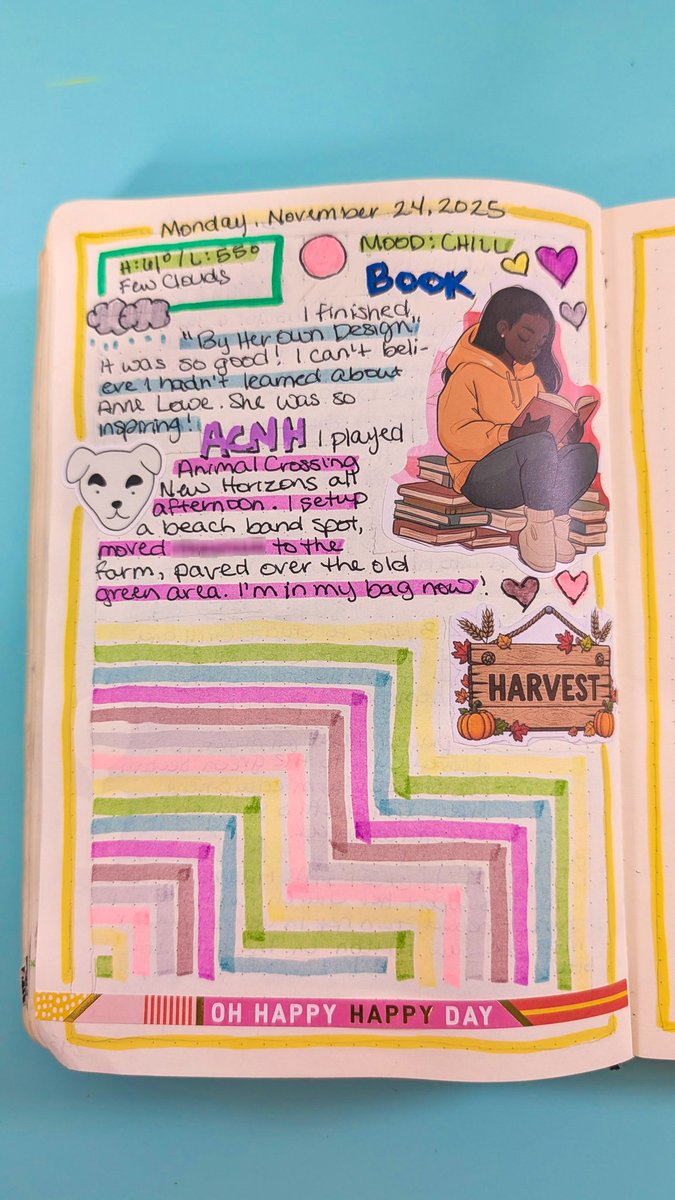 Monday, November 24, 2025
H:61°/L:55°
Few Clouds
MOOD: CHILL
BOOK
I finished
"By Her Own Design".
It was so good! I can't beli-
eve I hadn't learned about
Anne Lowe. She was so
inspiring!
ACNH I played
Animal Crossing
New Horizons all
afternoon. I setup
a beach band spot,
moved to the
farm, paved over the old
green area. I'm in my bag now!
HARVEST
OH HAPPY HAPPY DAY